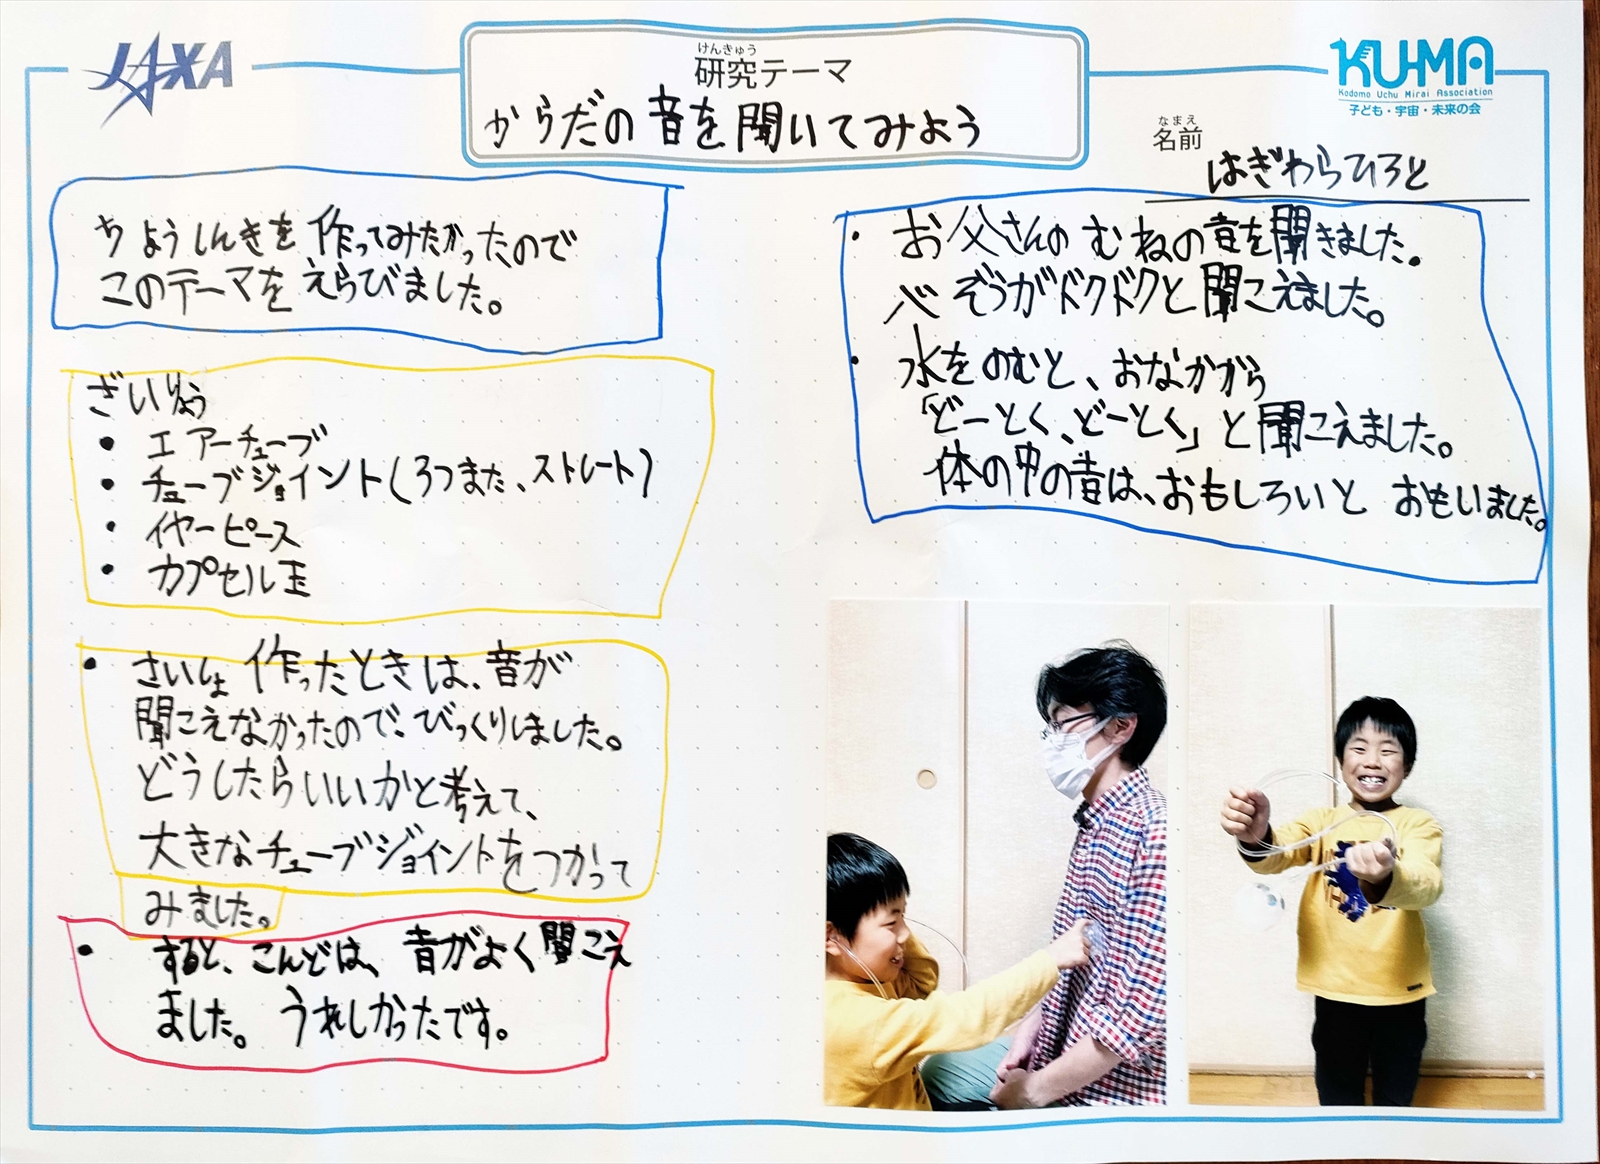 JAXA
けんきゅう
研究テーマ
からだの音を聞いてみよう
KU-MA
Kodomo Uchu Mirai Association
子ども・宇宙・未来の会
なまえ
名前
はぎわらひろと
ちょうしんきを作ってみたかったので
このテーマをえらびました。
ざいりょう
・エアーチューブ
・チューブジョイント(3つまた、ストレート)
・イヤーピース
・カプセル玉
・さいしょ作ったときは、音が
聞こえなかったので、びっくりしました。
どうしたらいいかと考えて、
大きなチューブジョイントをつかって
みました。
・すると、こんどは、音がよく聞こえ
ました。うれしかったです。
・お父さんのむねの音を聞きました。
心ぞうがドクドクと聞こえました。
・水をのむと、おなかから
「どーとく、どーとく」と聞こえました。
体の中の音は、おもしろいとおもいました。